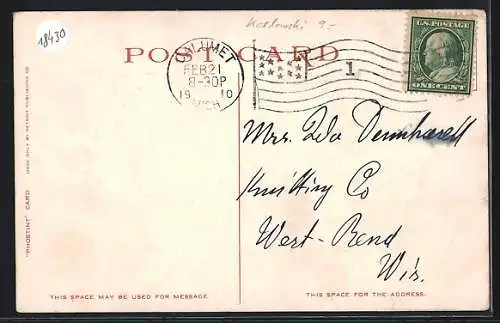 18430
Koslowski 9.-
POST CARD
CALUMET
FEB 21
8-30P
1910
MICH.
1
U.S. POSTAGE
ONE CENT
Mrs. Ida
Knitting Co
West-Bend
Wis.
"PHOSTINT" CARD
MADE ONLY BY DETROIT PUBLISHING CO.
THIS SPACE MAY BE USED FOR MESSAGE.
THIS SPACE FOR THE ADDRESS.